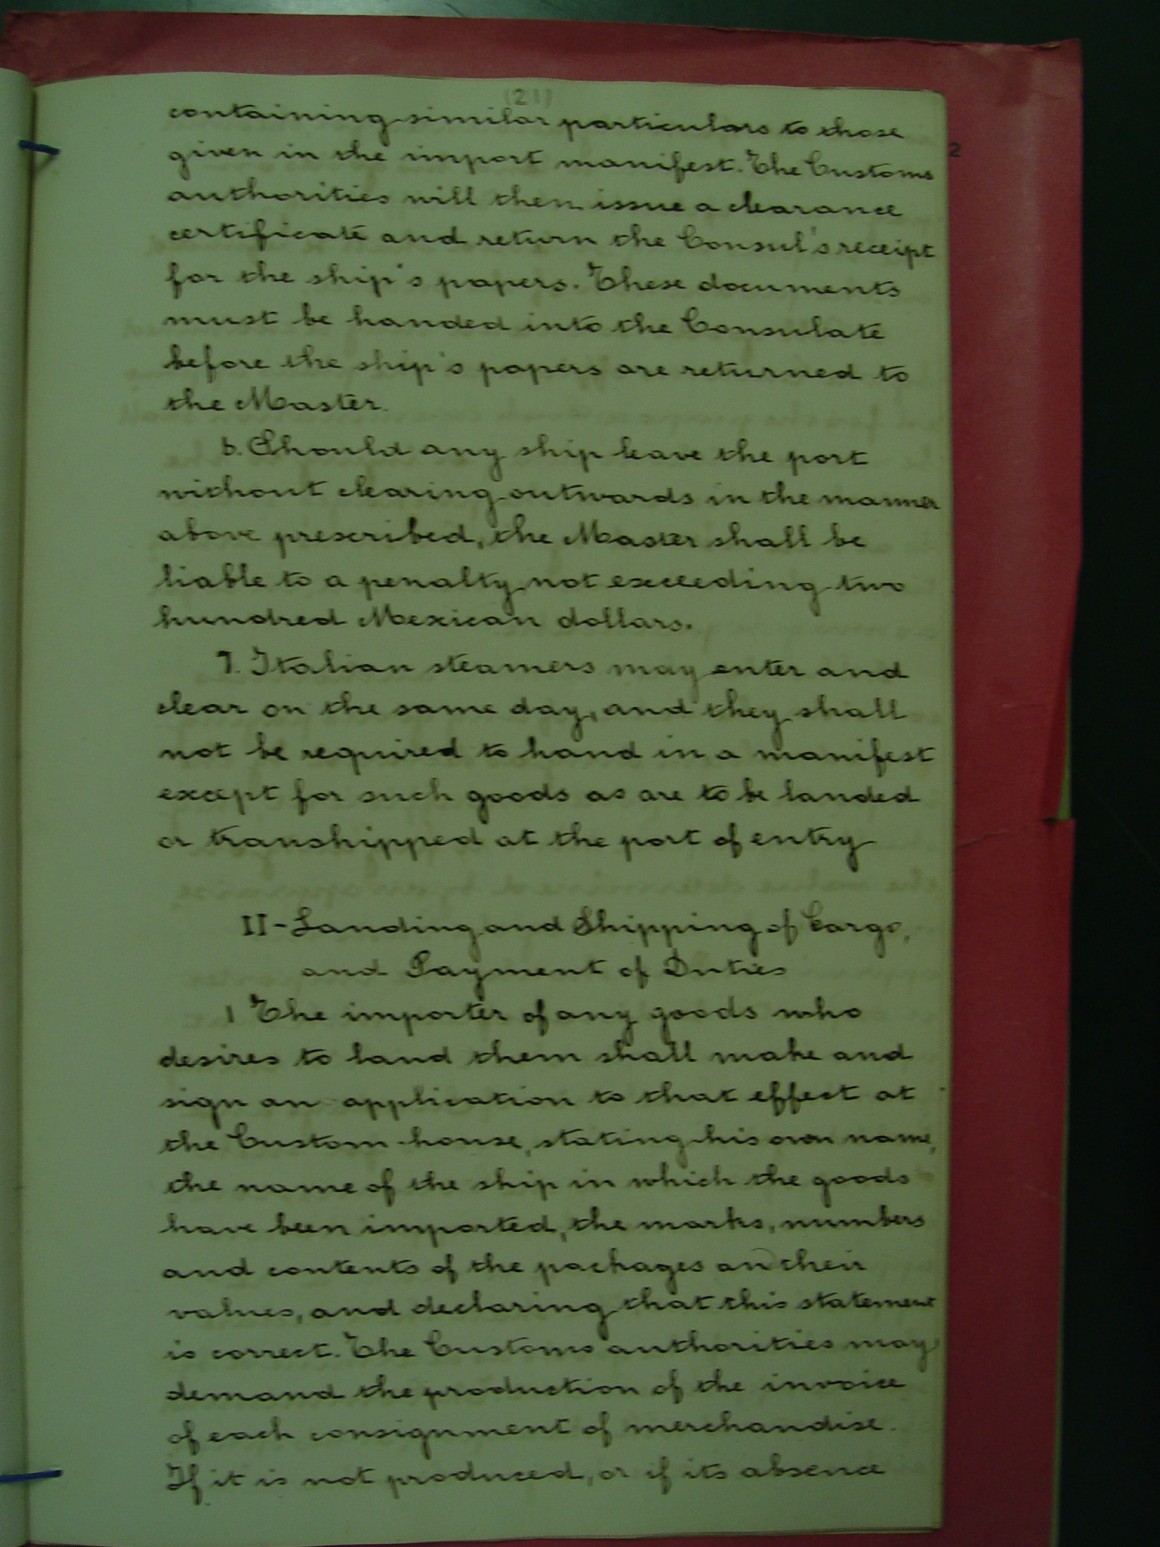 (21)
containing similar particulars to those
given in the import manifest. The Customs
2
authorities will then issue a clearance
certificate and return the Consul's receipt
for the ship's papers. These documents
must be handed into the Consulate
before the ship's papers are returned to
the Master.
6. Should any ship leave the port
without clearing outwards in the manner
above prescribed, the Master shall be
liable to a penalty not exceeding two
hundred Mexican dollars.
7. Italian steamers may enter and
clear on the same day, and they shall
not be required to hand in a manifest
except for such goods as are to be landed
or transhipped at the port of entry
II - Landing and Shipping of Cargo,
and Payment of Duties
1 The importer of any goods who
desires to land them shall make and
sign an application to that effect at
the Custom-house, stating his own name,
the name of the ship in which the goods
have been imported, the marks, numbers
and contents of the packages and their
values, and declaring that this statement
is correct. The Customs authorities may
demand the production of the invoice
of each consignment of merchandise.
If it is not produced, or if its absence